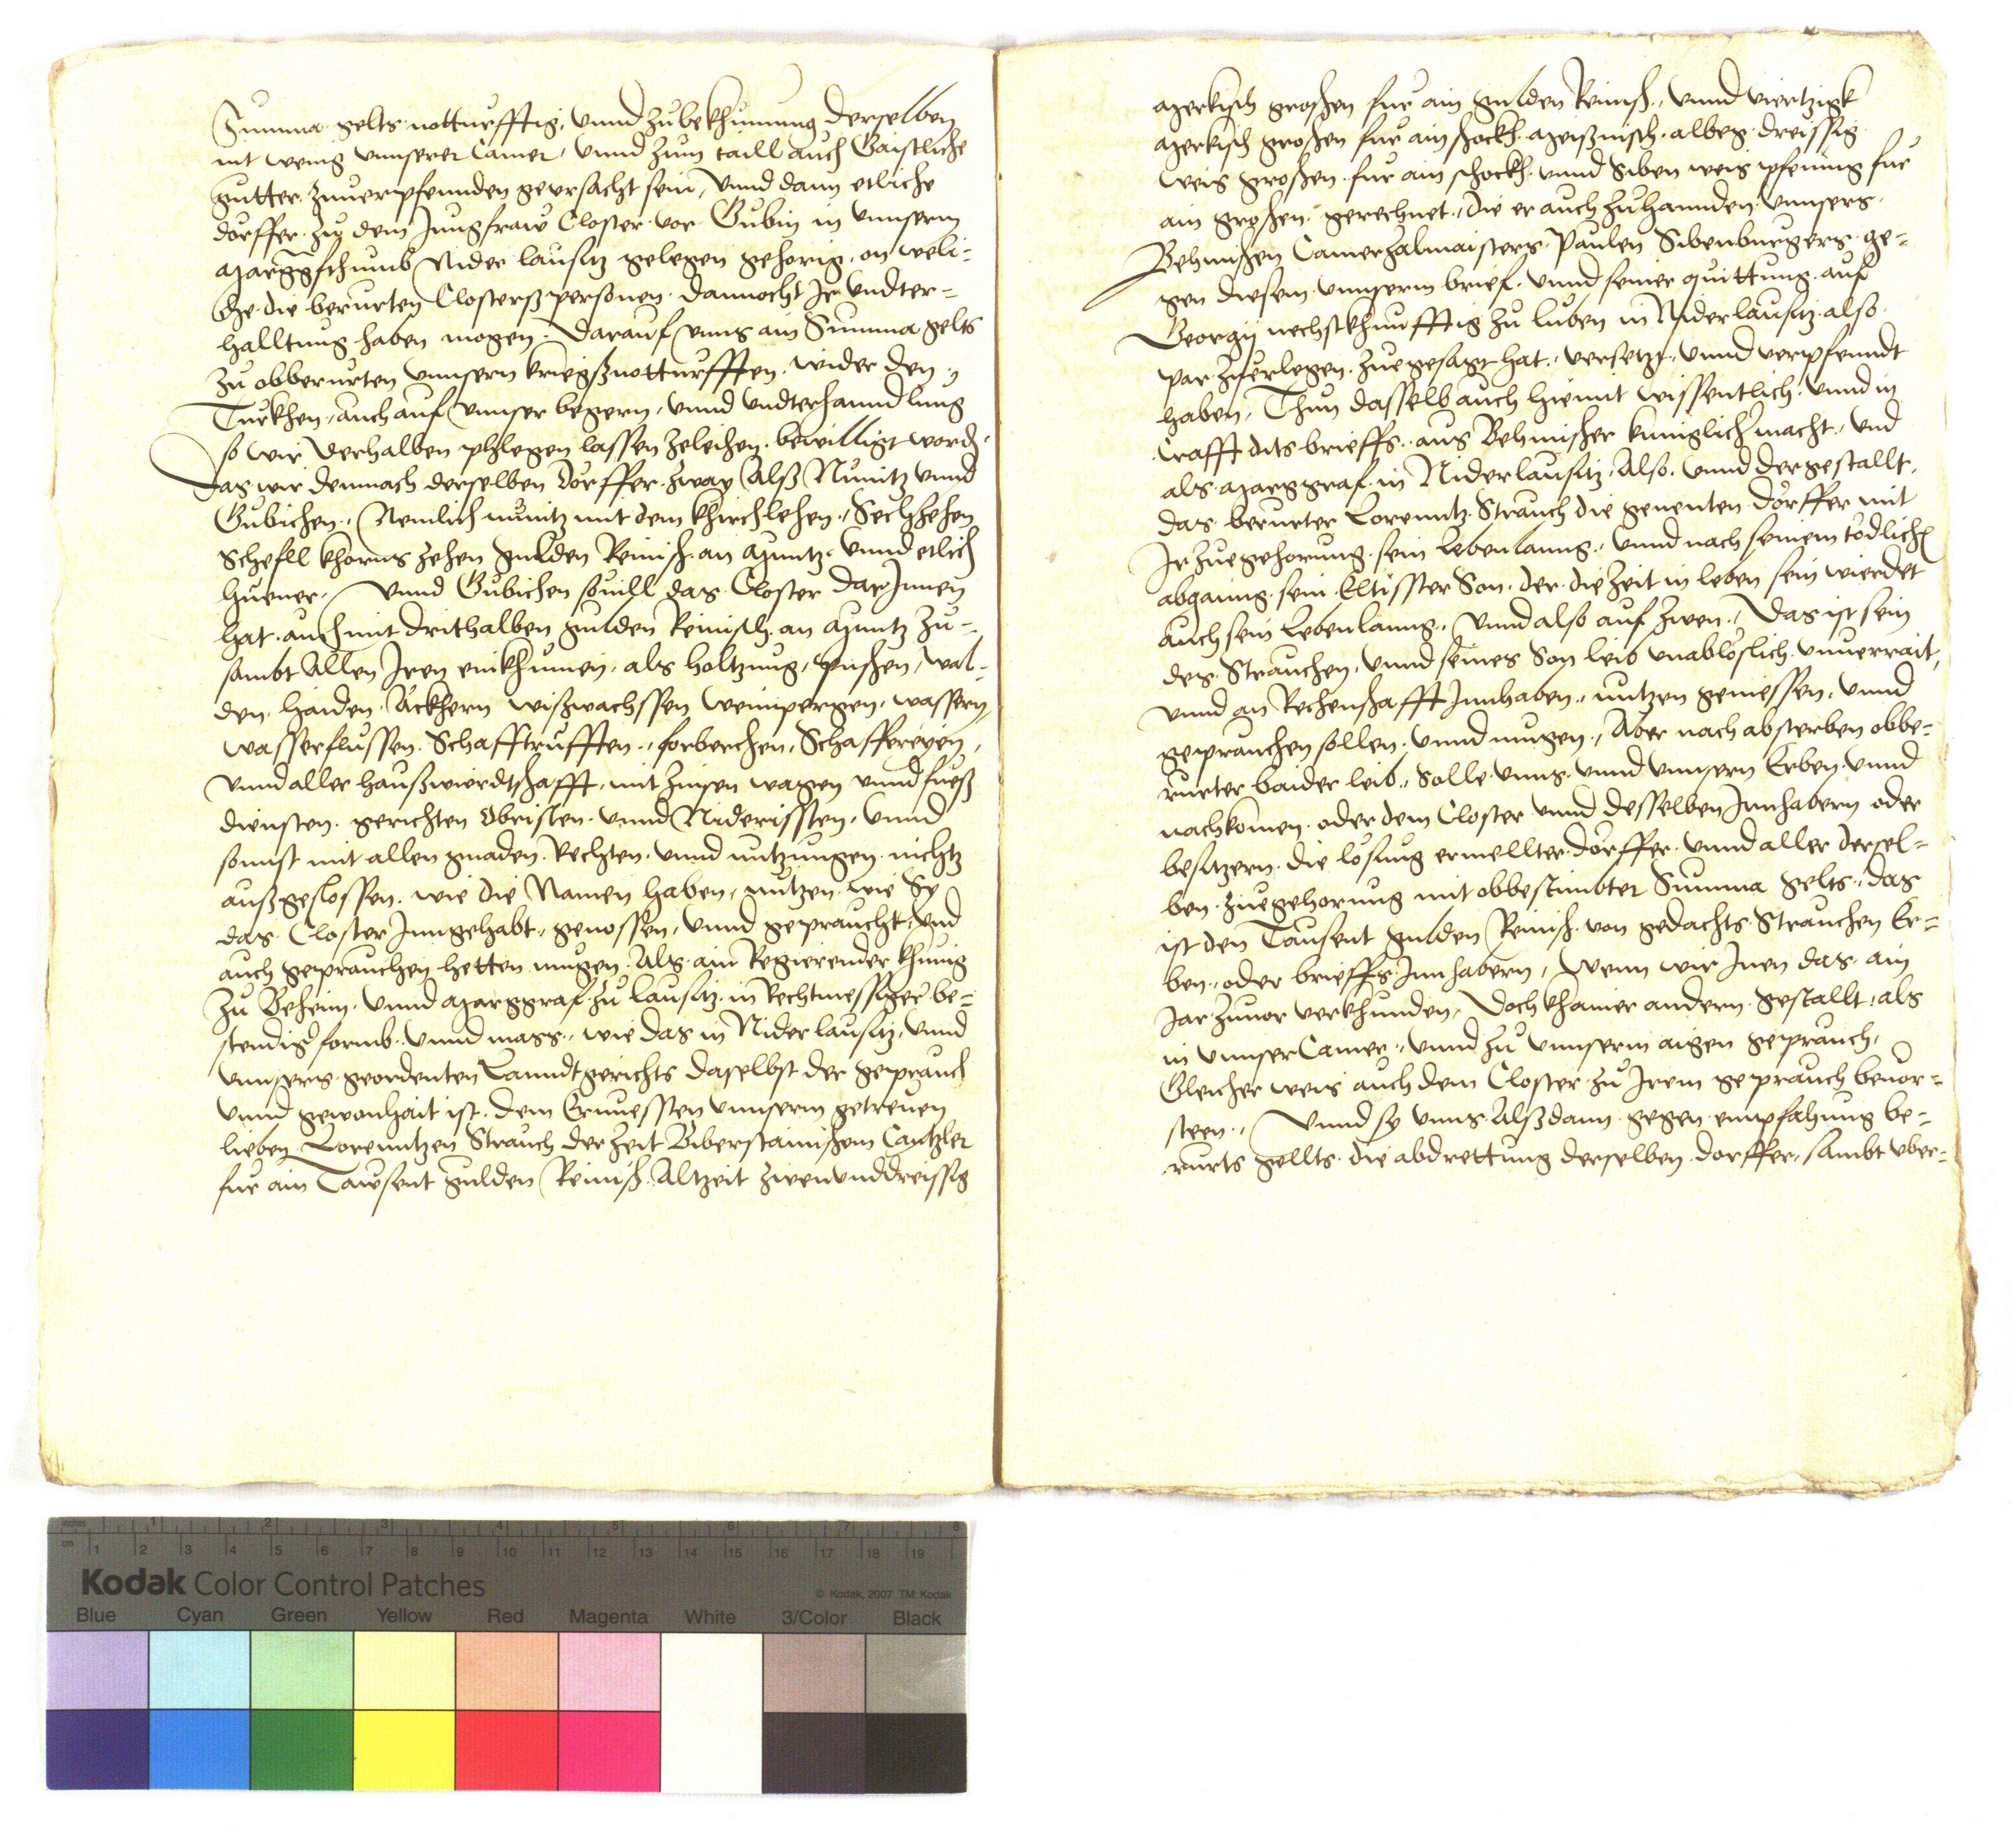 Summa gelts notturfftig, vnnd zubekhumung derselben
nit wenig vnnserer Camer, vnnd zum taill auch Gaistliche
gutter zuuerpfennden geursacht sein, vnnd dann etliche
dorffer zu dem Jungfraw Closter vor Gubin in vnnserm
Marggfthumb Nider lausitz gelegen gehorig, on weli-
che die berurten Closterßpersonen dannocht Ir vndter-
halltung haben mogen. Darauf vnns ain Summa gelts
zu obberurten vnnsern kriegßnotturfften wider den
Turkhen, auch auf vnnser begern, vnnd vndterhanndlung
so wir derhalben phlegen lassen zeleihen bewilligt word,
Das wir demnach derselben Dorffer zway Alß Nimitz vnnd
Gubichen, Nemlich nimitz mit dem khirchlehen, Sechzehen
Scheffl khorns zehen gulden Reinisch an Muntz vnnd etlich
huener, Vnnd Gubichen souill das Closter dar Innen
hat, auch mit drithalben gulden Reinisch an Muntz zu-
sambt Allen Iren einkhumen, als holtzung, puschen, wal-
den, haiden, Ackhern wißwachssen weinpergen, wassern,
wasserflussen, Schafftrufften, forberchen, Schaffereyen,
vnnd aller haußwierdtschafft, mit zinsen wagen vnnd fueß
diensten, gerichten Obristen vnnd Niderissten, vnnd
sonnst mit allen gnaden, Rechten, vnnd nutzungen nichtz
außgeslossen, wie die Namen haben, nutzen wie Sy
das Closter Inngehabt, genossen, vnnd gepraucht, vnd
auch geprauchen hetten mugen, Als ain Regierender khunig
zu Beheim, vnnd Marggraf zu lausitz in Rechtmessiger be-
stendiger formb, vnnd mass, wie das in Nider lausitz, vnnd
vnnsers geordenten Lanndtgerichts daselbst der geprauch
vnnd gewonhait ist, dem Ernuessten vnnserm getreuen
lieben Lorenntzen Strauch der Zeit Biberstainischem Cantzler
fur ain Tausent gulden Reinisch Altzeit zwenunddreissig
Merkisch groschen fur ain gulden Reinisch, vnnd viertzigk
Merkisch groschen fur ain schockh Meißnisch, albeg dreissig
weis groschen fur ain schockh, vnnd Siben weis pfening fur
ain groschen gerechnet, die er auch zuhannden vnnsers
Behmischen Camerzalmaisters Paulen Sibenburgers ge-
gen diesem vnnserm brief, vnnd seiner quittung auf
Georgy nechstkhunfftig zu luben in Niderlausitz also
par zuerlegen zuegesagt hat, versetzt, vnnd verpfenndt
haben, Thun dasselb auch hiemit wissentlich, vnnd in
Crafft dits brieffs, aus Behmischer kuniglicher macht, vnd
als Marggraf in Niderlausitz, Also, vnnd dergestallt,
das berurter Lorenntz Strauch die genenten dorffer mit
Ir zuegehorung sein lebenlanng, vnnd nach seinem todlichen
abganng sein Eltisster Son, der die Zeit in leben sein wierdet
auch sein lebenlanng, vnnd also auf zwen, Das ist sein
des Strauchen, vnnd seines Son leib vnabloslich vnuerrait,
vnnd an Rechenschafft Innhaben, nutzen geniessen, vnnd
geprauchen sollen, vnnd mugen, Aber nach absterben obbe-
rurter baider leib, Solle vnns vnnd vnnsern Erben vnnd
nachkomen, oder dem Closter vnnd desselben Innhabern oder
besitzern die losung ermellter dorffer, vnnd aller dersel-
ben zuegehorung mit obbestimbter Summa gelts, das
ist den Tausent gulden Reinisch von gedachts Strauchen Er-
ben, oder brieffs Innhabern, Wenn wir Inen das ain
Jar zuuor verkhunden, Doch khainer andern gestallt, als
in vnnser Camer, vnnd zu vnnserm aigen geprauch,
Gleicher weis auch dem Closter zu Irem geprauch beuor-
steen, Vnnd sy vnns Alßdann gegen empfahung be-
rurts gellts, die abdrettung derselben dorffer, sambt vber-
Kodak Color Control Patches
© Kodak, 2007 TM: Kodak
Blue Cyan Green Yellow Red Magenta White 3/Color Black